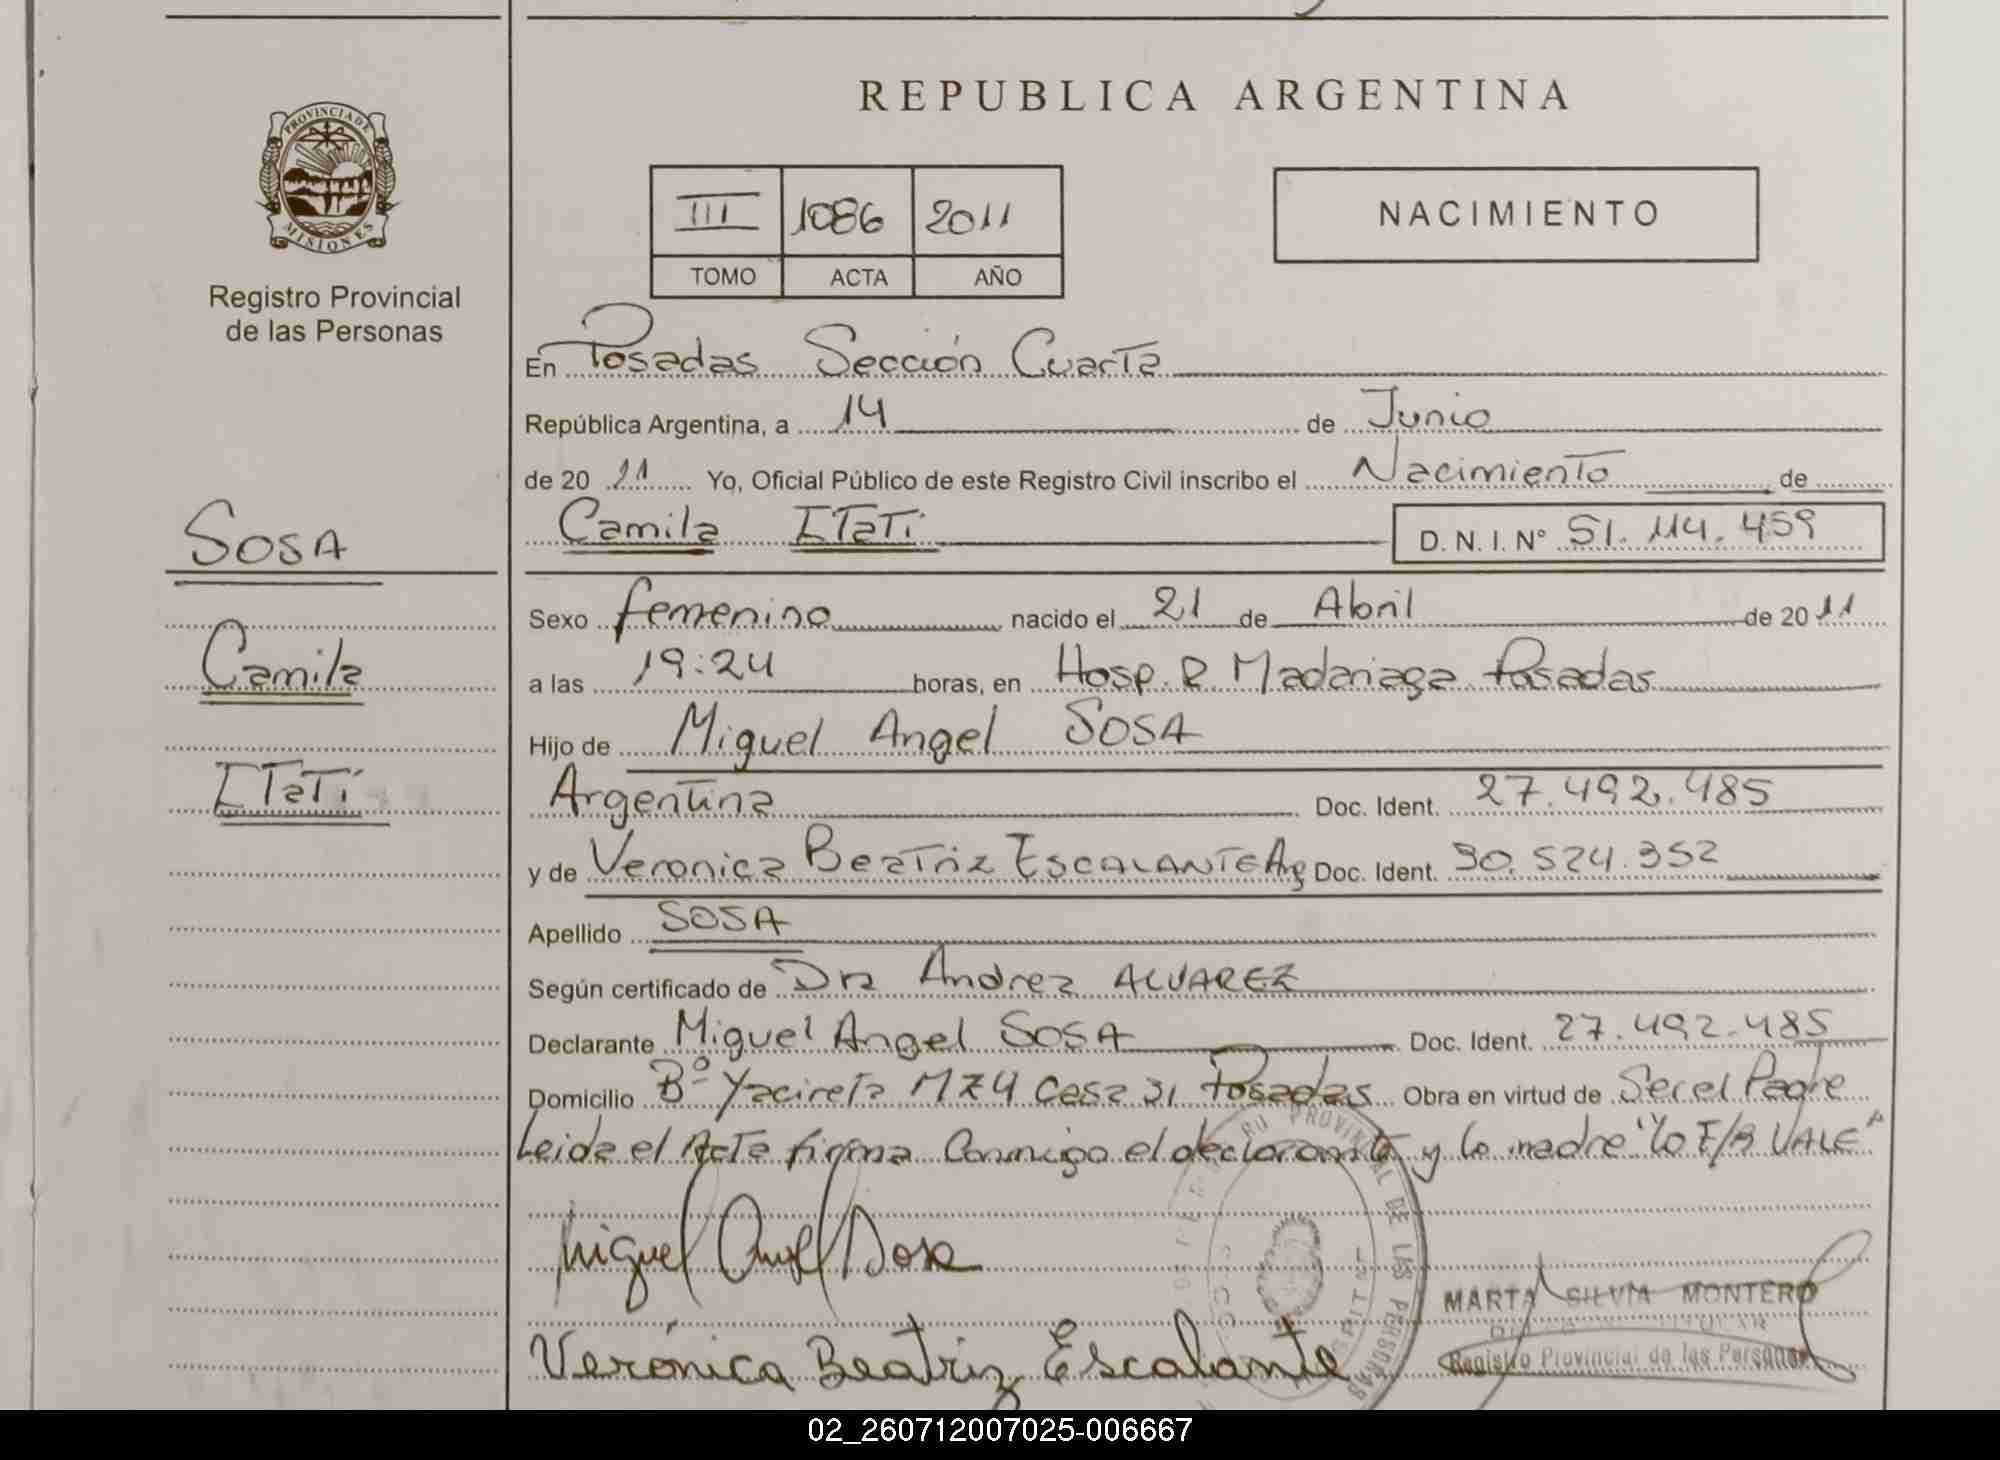 REPUBLICA ARGENTINA
PROVINCIA DE
MISIONES
Registro Provincial
de las Personas
III 1086 2011
TOMO ACTA AÑO
NACIMIENTO
En Posadas Sección Cuarta
República Argentina, a 14 de Junio
de 20 11 Yo, Oficial Público de este Registro Civil inscribo el Nacimiento de
Camila Itatí D. N. I. N° 51.114.459
SOSA
Camila
Itatí
Sexo femenino nacido el 21 de Abril de 20 11
a las 19:24 horas, en Hosp. R. Madariaga Posadas
Hijo de Miguel Angel SOSA
Argentina Doc. Ident. 27.492.485
y de Veronica Beatriz ESCALANTE Arg Doc. Ident. 30.524.352
Apellido SOSA
Según certificado de Dra Andrea ALVAREZ
Declarante Miguel Angel SOSA Doc. Ident. 27.492.485
Domicilio Bº Yacireta MZ4 Casa 31 Posadas Obra en virtud de Ser el Padre
Leida el Acta firma Conmigo el declarante y la madre "lo E/R VALE"
Miguel Angel Sosa
Verónica Beatriz Escalante
PROVINCIAL DE LAS PERSONAS
MARTA SILVIA MONTERO
Registro Provincial de las Personas
02_260712007025-006667